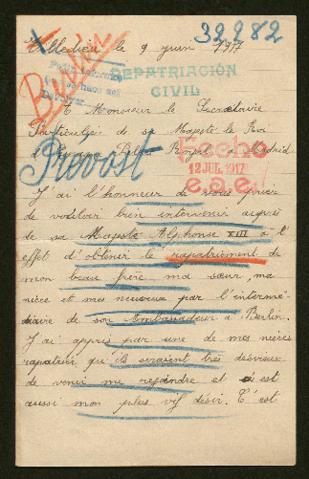 32982
Villedieu le 9 juin 1917
Berlin
REPATRIACIÓN
CIVIL
A Monsieur le Secrétaire
Particulier de sa Majesté le Roi
d'Espagne Palais Royal à Madrid
Prévost
Hecho
12 JUL. 1917
J'ai l'honneur de vous prier
de vouloir bien intervenir auprès
de sa Majesté Alphonse XIII à l'
effet d'obtenir le rapatriement de
mon beau frère ma sœur, ma
nièce et mes neveux par l'intermé
diaire de son Ambassadeur à Berlin.
J'ai appris par une de mes nièces
rapatriée qu'ils seraient très désireux
de venir me rejoindre et c'est
aussi mon plus vif désir. C'est